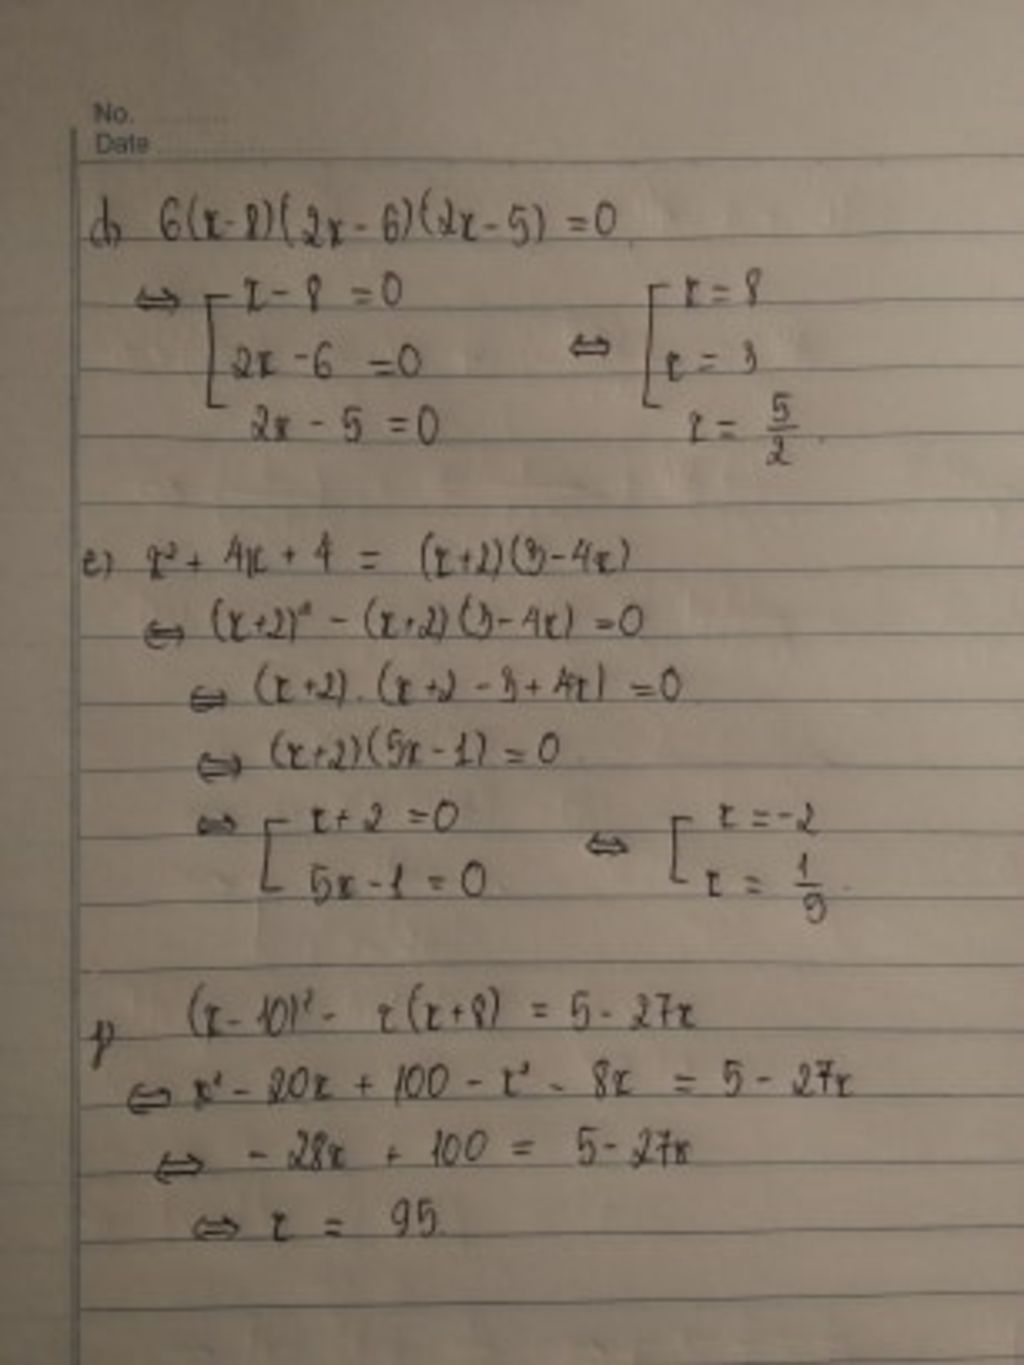 No.
Date
d) 6(x-8)(2x-6)(2x-5) = 0
⇔ [ x-8 = 0 ⇔ [ x = 8
2x-6 = 0 x = 3
2x-5 = 0 x = 5/2
e) x²+4x+4 = (x+2)(3-4x)
⇔ (x+2)² - (x+2)(3-4x) = 0
⇔ (x+2).(x+2-3+4x) = 0
⇔ (x+2)(5x-1) = 0
⇔ [ x+2 = 0 ⇔ [ x = -2
5x-1 = 0 x = 1/9
f) (x-10)² - x(x+8) = 5-27x
⇔ x² - 20x + 100 - x² - 8x = 5 - 27x
⇔ -28x + 100 = 5-27x
⇔ x = 95.